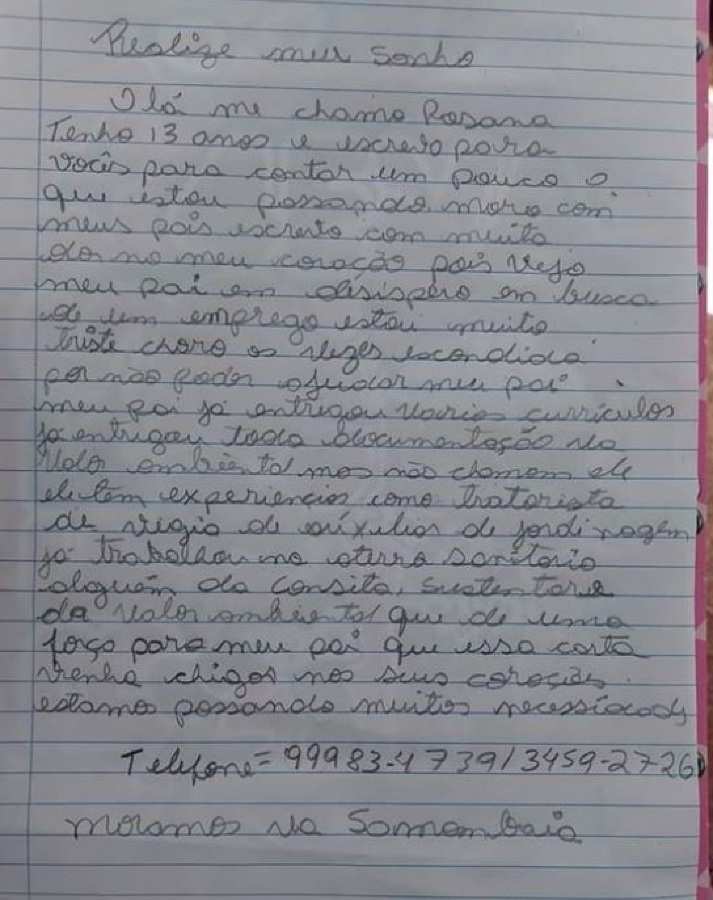 Realize meu Sonho
Olá me chamo Rosana
Tenho 13 anos e escrevo para
vocês para contar um pouco o
que estou passando moro com
meus pais escrevo com muita
dor no meu coração pois vejo
meu pai em desispero em busca
de um emprego estou muito
triste choro as vezes escondida
por não poder ajudar meu pai
meu pai já entregou varios currículos
já entregou toda documentação na
Valor ambiental mas não chamam ele
ele têm experiencias como tratorista
de vigia de auxilios de jardinagem
já trabalhou no aterro sanitario
alguém da Consita, Sustentare
da valor ambiental que de uma
força para meu pai que essa carta
venha chigar nos seus corações
estamos passando muitos necessidads
Telefone = 99983-4739 / 3459-2726
moramos na Samambaia